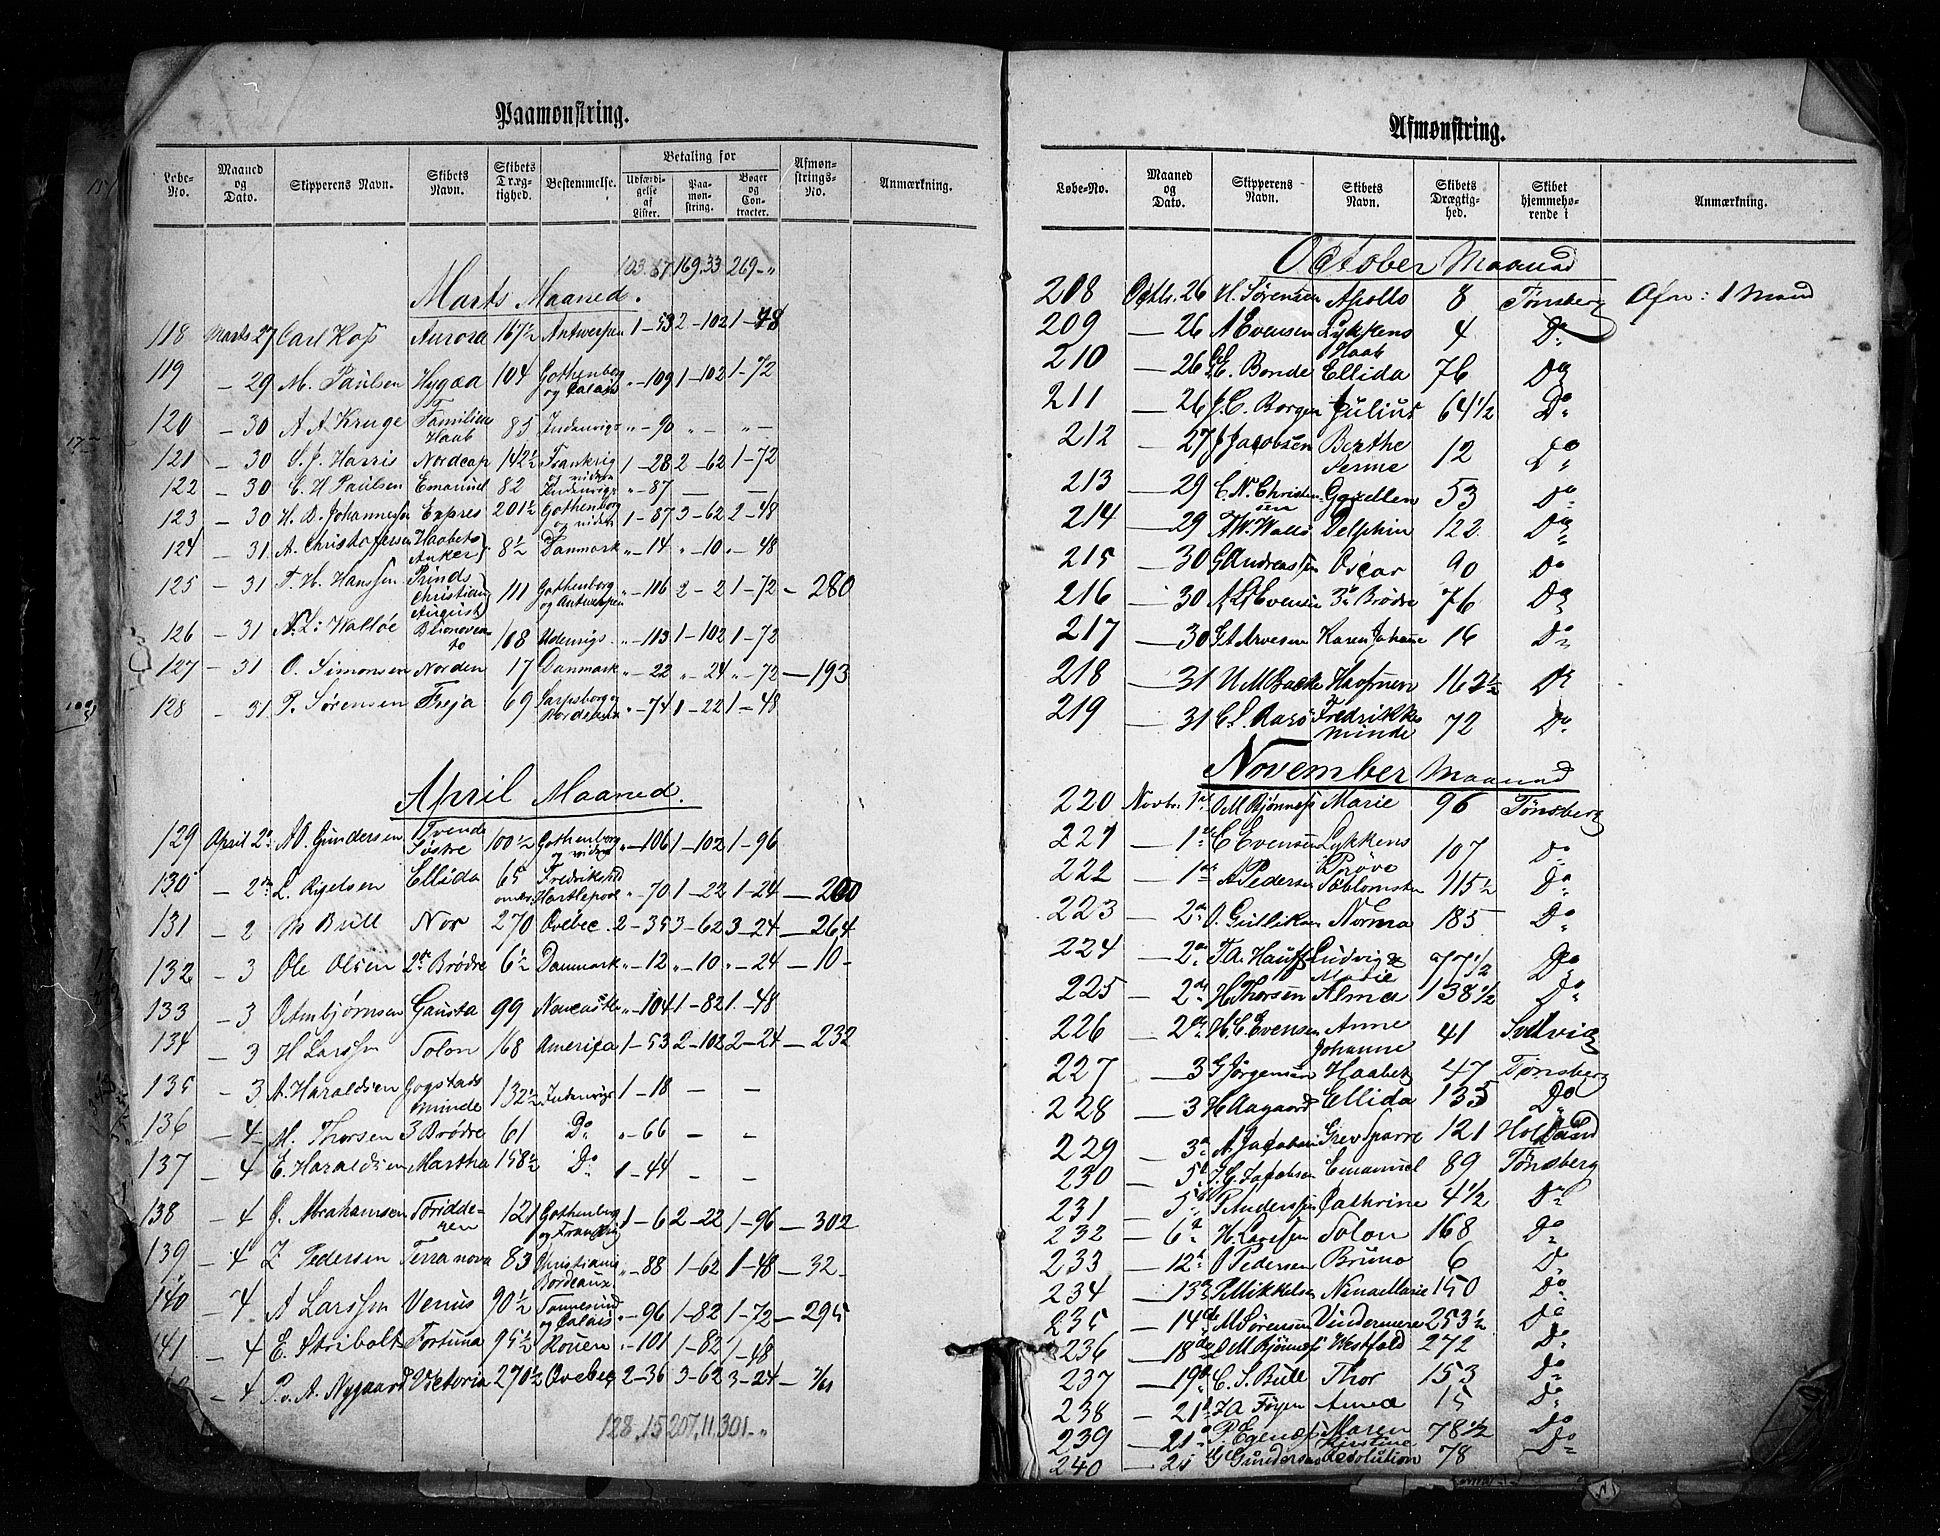 Paamønstring.
Løbe-No. Maaned og Dato. Skipperens Navn. Skibets Navn. Skibets Drægtighed. Bestemmelse. Betaling for Udfærdigelse af Lister. Paamønstring. Bøger og Contracter. Afmønstrings-No. Anmærkning.
103.87 169.33 269-"
Marts Maaned.
118 Marts 27 Carl Aurora 167½ Antwerpen 1-53 2-102 1-48
119 - 29 M. Paulsen Hygæa 104 Gothenborg og Calais "-109 1-102 1-72
120 - 30 A A Kruge Familiens Haab 85 Indenrigs "-90 "- "-
121 - 30 S. J. Harris Nordcap 142½ Frankrig og videre 1-28 2-62 1-72
122 - 30 C. H Paulsen Emanuel 82 Indenrigs "-87 - -
123 - 30 H. B. Johannessen Expres 201½ Gothenborg og videre 1-87 3-62 2-48
124 - 31 A. Christofersen Haabets Anker 8½ Danmark "-14 "-10 "-48
125 - 31 T. H. Hanssen Prinds Christian August 111 Gothenborg og Antwerpen "-116 2-2 1-72 - 280
126 - 31 N. L: Walløe 108 Udenrigs "-113 1-102 1-72
127 - 31 O. Simonsen Norden 17 Danmark "-22 "-24 "-72 - 193
128 - 31 P. Sørensen Freja 69 Sarpsborg og Bordeaux "-74 1-22 1-48
April Maaned.
129 April 2 A O. Gundersen Tvende Søstre 100½ Gothenborg og videre "-106 1-102 1-96
130 - 2 L. Ellida 65 Fredrikstad Hartlepool "-70 1-22 1-24 - 200
131 - 2 M Bull Nor 270 Qvebec 2-35 3-62 3-24 - 264
132 - 3 Ole Olsen 2de Brødre 6½ Danmark "-12 "-10 "-24 - 10 -
133 - 3 Asmbjørnsen Gausta 99 Newcastle "-104 1-82 1-48
134 - 3 H Larssen Solon 168 Amerika 1-53 2-102 2-24 - 232
135 - 3 A. Haraldsen Gogstads minde 132½ Indenrigs 1-18 - -
136 - 4 M. Thorsen 3 Brødre 61 Do "-66 - -
137 - 4 E. Haraldsen Martha 158½ Do 1-44 - -
138 - 4 G. Abrahamsen 121 Gothenborg og Frankrig 1-6 2-22 1-96 - 302
139 - 4 Z Pedersen Terra nova 83 Christiania Bordeaux "-88 1-62 1-48 - 32 -
140 - 4 A Larssen Venus 90½ og Calais "-96 1-82 1-72 - 295
141 - 4 E. Stribolt Fortuna 95½ Rouen "-101 1-82 1-48
- 4 P. v. A. Nygaard Victoria 270½ Qvebec 2-36 3-62 3-24
128,15 207,11 301-"
Afmønstring.
Løbe-No. Maaned og Dato. Skipperens Navn. Skibets Navn. Skibets Drægtighed. Skibet hjemmehørende i Anmærkning.
October Maaned
208 Octbr. 26 H. Sørensen Apollo 8 Tønsberg Afm: 1 Mand
209 - 26 A Evensen Lykkens Haab 4 Do
210 - 26 E. Bonde Ellida 76 Do
211 - 26 J. C. Borgen Julius 64½ Do
212 - 27 J Jacobsen Berthe Serine 12 Do
213 - 29 C. N. Christensen Gazellen 53 Do
214 - 29 Delphin 122 Do
215 - 30 G Andreassen Oscar 90 Do
216 - 30 A. Evensen 3de Brødre 76 Do
217 - 30 G. A. Arvesen Karen Johanne 16 Do
218 - 31 U M Backe Havfruen 162½ Do
219 - 31 C. S. Aasø Fredrikkes minde 72 Do
November Maaned
220 Novbr. 1 O M Bjønness Marie 96 Tønsberg
221 - 1 C Evensen Lykkens Prøve 107 Do
222 - 1 A Pedersen Søblomsten 115½ Do
223 - 2 O. Gulliksen Norma 185 Do
224 - 2 T. A. Hauff Ludvig & Marie 77½ Do
225 - 2 H. Thorsen Alma 138½ Do
226 - 2 H. C. Evensen Anne Johanne 41 Svelvig
227 - 3 G Jørgensen Haabet 47 Tønsberg
228 - 3 H Aagaard Ellida 135 Do
229 - 3 A. Jacobsen Grev Sparre 121 Holland
230 - 5 J. G. Jacobsen Emanuel 89 Tønsberg
231 - 5 P. Anderssen Cathrine 4½ Do
232 - 6 H. Larssen Solon 168 Do
233 - 12 O Pedersen Bruno 6 Do
234 - 13 P. Mikkelsen Nina Marie 150 Do
235 - 14 M Sørensen Vindermere 253½ Do
236 - 18 O M Bjønness Westfold 272 Do
237 - 19 C. S. Bull Thor 153 Do
238 - 21 J A Føyen Anna 15 Do
239 - 21 P. E. Egenæs Maren Kirstine 78½ Do
240 - 21 G Gundersen Resolution 78 Do